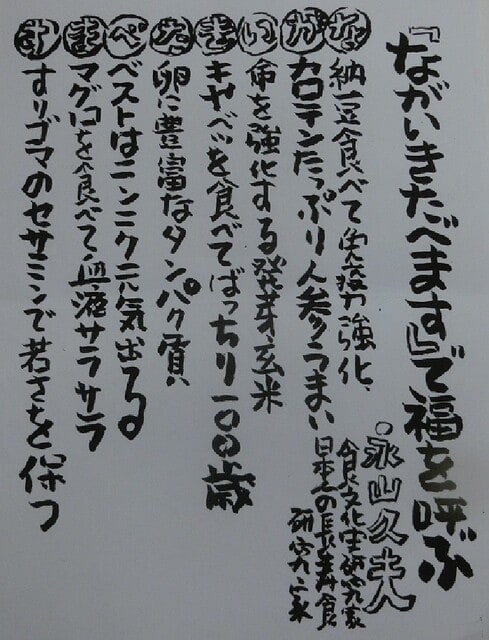 『ながいきたべます』で福を呼ぶ
・永山久夫
食文化史研究家
日本一の長寿食
研究家
な 納豆食べて免疫力強化、
が カロテンたっぷり人参うまい
い 命を強化する発芽玄米
き キャベツを食べてばっちり一〇〇歳
た 卵に豊富なタンパク質
べ ベストはニンニク元気出る
ま マグロを食べて血液サラサラ
す すりゴマのセサミンで若さを保つ